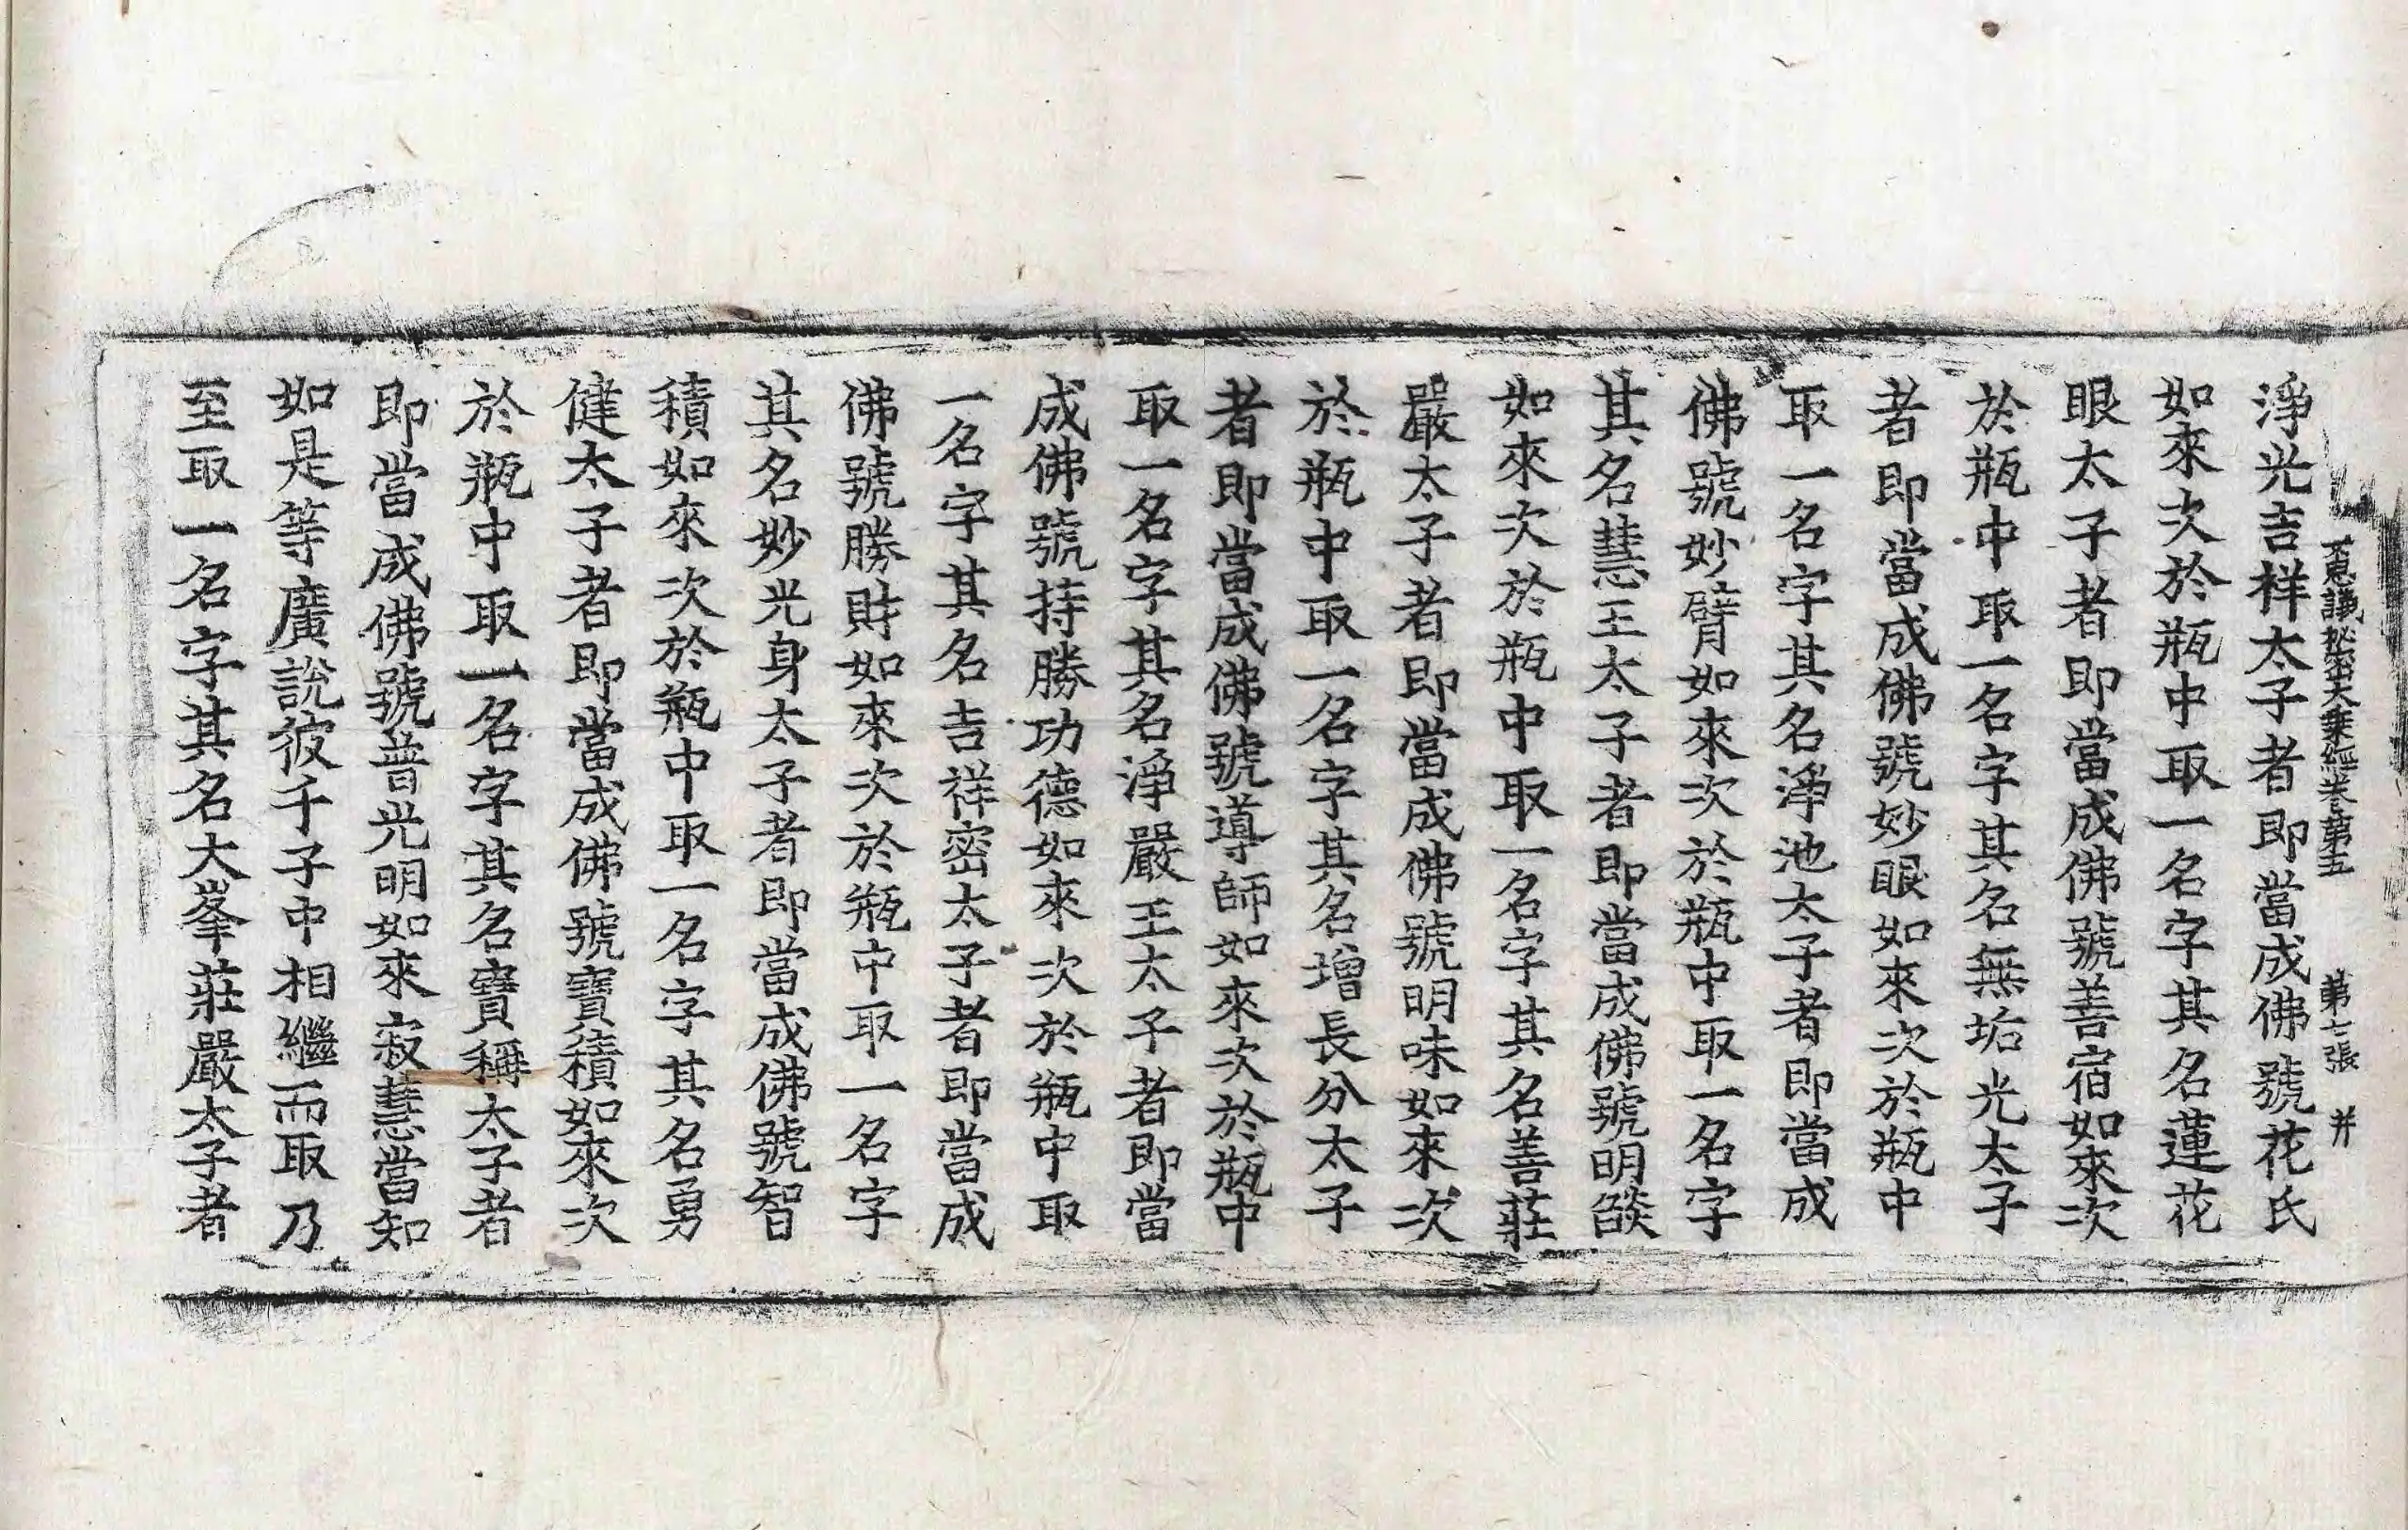 不思議秘密大乘經卷第五　第七張　并
淨光吉祥太子者即當成佛號花氏
如來次於瓶中取一名字其名蓮花
眼太子者即當成佛號善宿如來次
於瓶中取一名字其名無垢光太子
者即當成佛號妙眼如來次於瓶中
取一名字其名淨池太子者即當成
佛號妙臂如來次於瓶中取一名字
其名慧王太子者即當成佛號明焰
如來次於瓶中取一名字其名善莊
嚴太子者即當成佛號明味如來次
於瓶中取一名字其名增長分太子
者即當成佛號導師如來次於瓶中
取一名字其名淨嚴王太子者即當
成佛號持勝功德如來次於瓶中取
一名字其名吉祥密太子者即當成
佛號勝財如來次於瓶中取一名字
其名妙光身太子者即當成佛號智
積如來次於瓶中取一名字其名勇
健太子者即當成佛號寶積如來次
於瓶中取一名字其名寶稱太子者
即當成佛號普光明如來寂慧當知
如是等廣說彼千子中相繼而取乃
至取一名字其名大峯莊嚴太子者